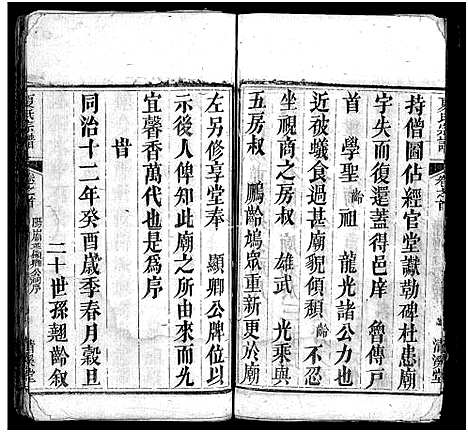 持僧圖佔經官堂讞勒碑杜患廟
字失而復還蓋得邑庠 魯傳戶
首 學聖 齡祖 龍光諸公力也
近被蟻食過甚廟貌傾頹 齡不忍
坐視商之房叔 雄武 光乘與
五房叔 鵬齡鳩眾重新更於廟
左另修享堂奉 顯卿公牌位以
示後人俾知此廟之所由來可以
宜馨香萬代也是為序
旹
同治十二年癸酉歲季春月穀旦
二十世孫翹齡敘
夏氏宗譜
卷之首
清溪堂
夏氏宗譜